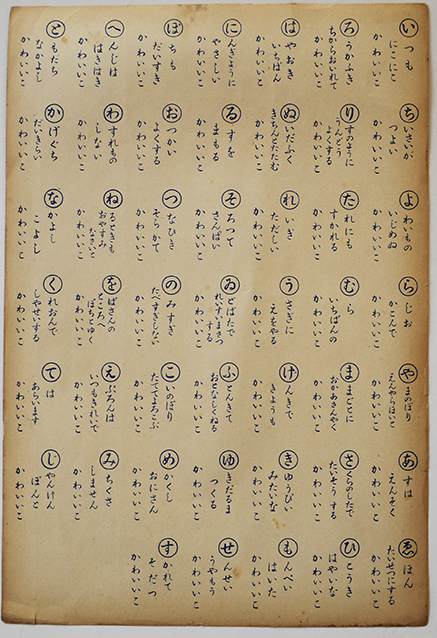 いつも
にこにこ
かわいいこ
ろうかふき
ちからおいれて
かわいいこ
はやおき
いちばん
かわいいこ
にんぎように
やさしい
かわいいこ
ぽちも
だいすき
かわいいこ
へんじは
はきはき
かわいいこ
ともだち
なかよし
かわいいこ
ちいさいが
つよい
かわいいこ
りすのように
うんどう
よくする
かわいいこ
ぬいだふく
きちんとたたむ
かわいいこ
るすを
まもる
かわいいこ
おつかい
よくする
かわいいこ
わすれもの
しない
かわいいこ
かげぐち
だいきらい
かわいいこ
よわいもの
いじめぬ
かわいいこ
たれにも
すかれる
かわいいこ
れいぎ
ただしい
かわいいこ
そろつて
さんぱい
かわいいこ
つなひき
そらかて
かわいいこ
ねるときも
おやすみ
なさいと
かわいいこ
なかよし
こよし
かわいいこ
らじお
かこんで
かわいいこ
むら
いちばんの
かわいいこ
うさぎに
えをやる
かわいいこ
ゐどばたで
れいすいまさつ
する
かわいいこ
のみすぎ
たべすぎしない
かわいいこ
をばさんの
ところへ
ぽちとゆく
かわいいこ
くれおんで
しやせいする
かわいいこ
やまのぼり
えんやらほいと
かわいいこ
ままごとに
おかあさんやく
かわいいこ
げんきで
きようも
かわいいこ
ふとんきて
おとなしくねる
かわいいこ
こいのぼり
たててよろこぶ
かわいいこ
えぷろんは
いつもきれいで
かわいいこ
ては
あらいます
かわいいこ
あすは
えんそく
かわいいこ
さくらのしたで
たいそうする
かわいいこ
きゆうぴい
みたいな
かわいいこ
ゆきだるま
つくる
かわいいこ
めかくし
おにさん
かわいいこ
みちくさ
しません
かわいいこ
じやんけん
ぽんと
かわいいこ
ゑほん
たいせつにする
かわいいこ
ひこうき
はやいな
かわいいこ
もんぺい
はいた
かわいいこ
せんせい
うやもう
かわいいこ
すかれて
そだつ
かわいいこ